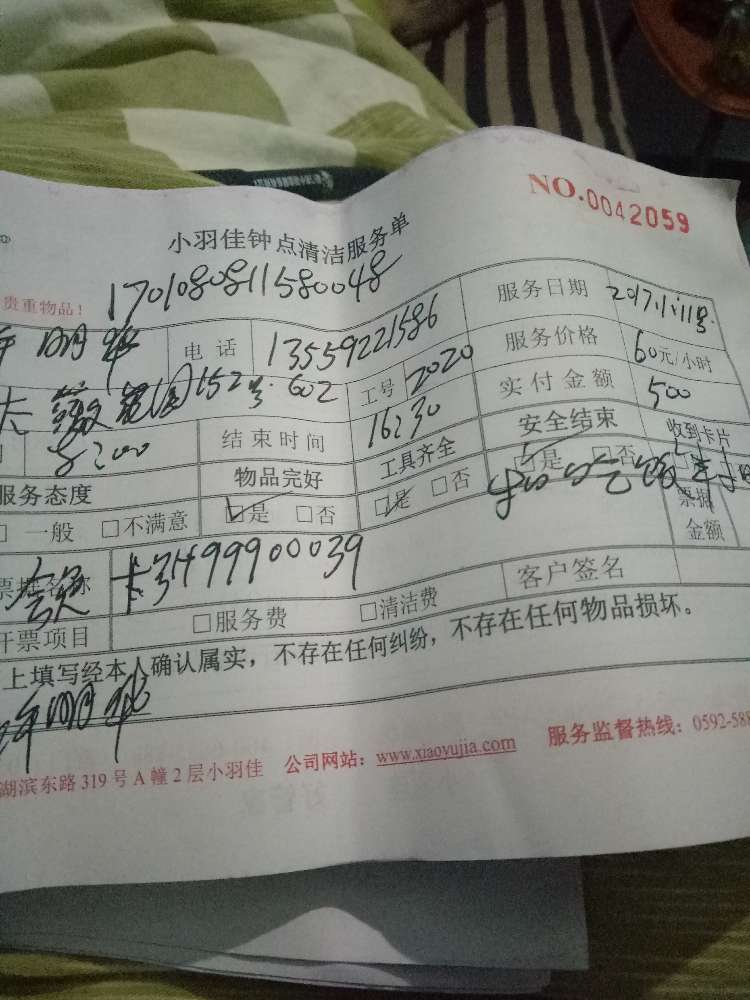 NO.0042059
小羽佳钟点清洁服务单
贵重物品！
1701080811580048
电话 13559221586 服务日期 2017.1.11号
152号602 工号 2020 服务价格 60元/小时
8:00 结束时间 16:30 实付金额 500
服务态度 物品完好 工具齐全 安全结束 收到卡片
□一般 □不满意 ☑是 □否 ☑是 □否 ☑是 □否
票据金额
票据名称 会员卡 3499900039
开票项目 □服务费 □清洁费 客户签名
上填写经本人确认属实，不存在任何纠纷，不存在任何物品损坏。
湖滨东路319号A幢2层小羽佳 公司网站：www.xiaoyujia.com 服务监督热线：0592-588